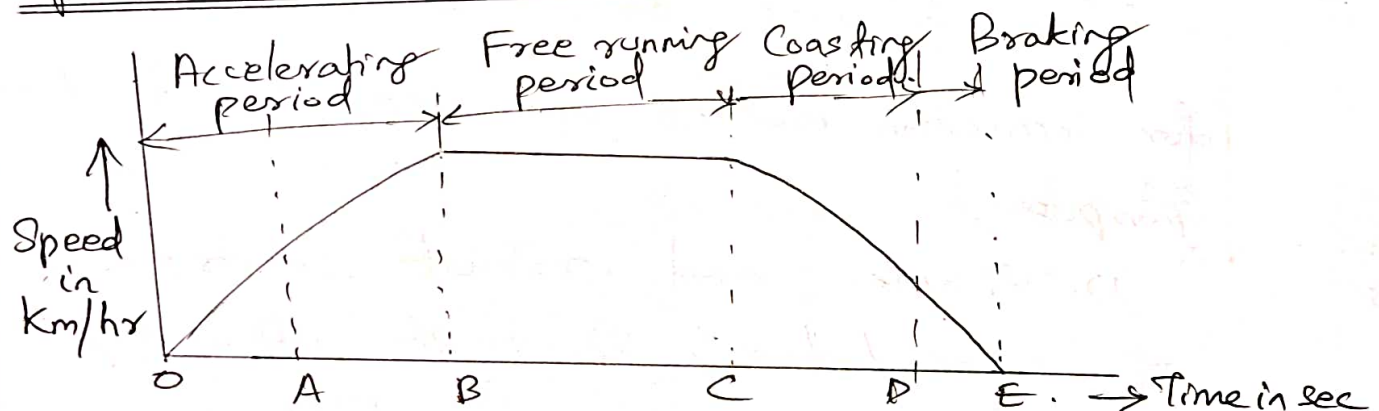 Accelerating period
Free running period
Coasting period
Braking period
Speed in Km/hr
O A B C D E. → Time in sec